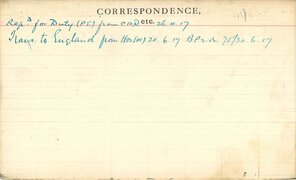 CORRESPONDENCE, etc.
Rep^d for Duty (P.S.) from C.B.D. 26. 4. 17
Trans. to England from Hos(w) 20. 6. 17 B Pr. or. 75/30. 6. 17